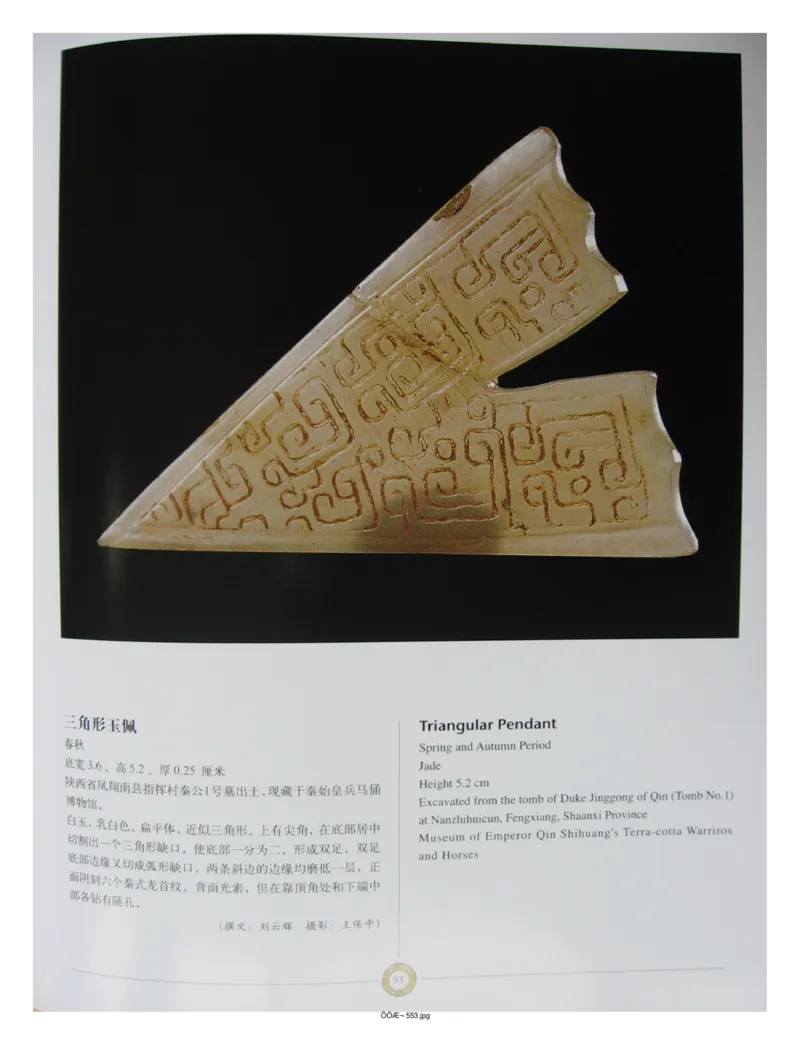 三角形玉佩
春秋
底宽3.6、高5.2、厚0.25 厘米
陕西省凤翔南县指挥村秦公1号墓出土,现藏于秦始皇兵马俑
博物馆。
白玉,乳白色。扁平体,近似三角形。上有尖角,在底部居中
切割出一个三角形缺口,使底部一分为二,形成双足,双足
底部边缘又切成弧形缺口,两条斜边的边缘均磨低一层,正
面阴刻六个秦式龙首纹。背面光素,但在靠顶角处和下端中
部各钻有隧孔。
(撰文:刘云辉 摄影:王保平)
Triangular Pendant
Spring and Autumn Period
Jade
Height 5.2 cm
Excavated from the tomb of Duke Jinggong of Qin (Tomb No.1)
at Nanzhihuicun, Fengxiang, Shaanxi Province
Museum of Emperor Qin Shihuang's Terra-cotta Warriros
and Horses
93
ÕÕÆ¬ 553.jpg